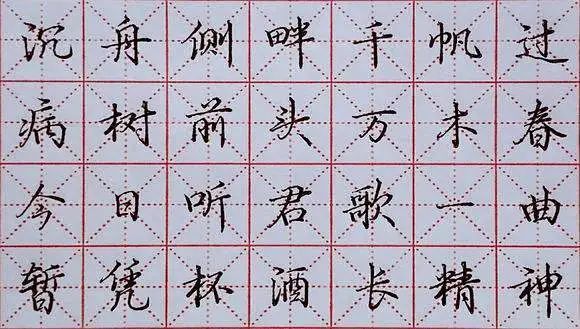 沉舟侧畔千帆过
病树前头万木春
今日听君歌一曲
暂凭杯酒长精神